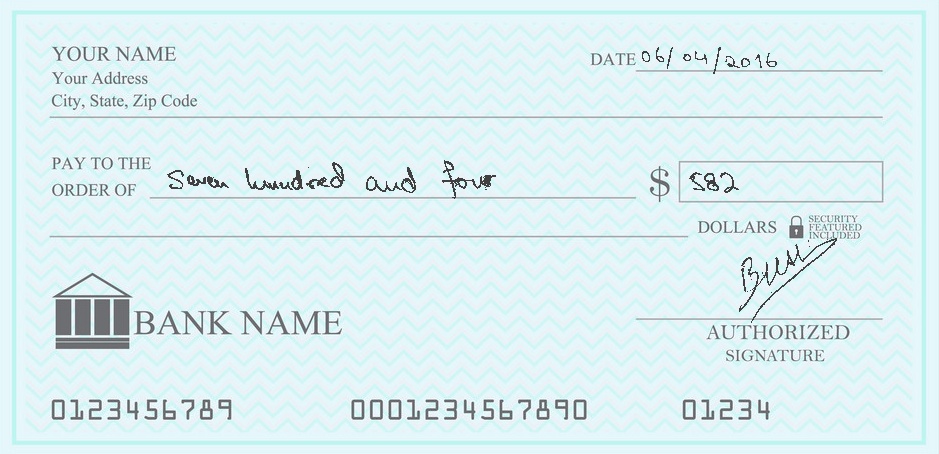 YOUR NAME
Your Address
City, State, Zip Code
DATE 06/04/2016
PAY TO THE
ORDER OF Seven hundred and four $ 582
DOLLARS SECURITY
FEATURED
INCLUDED
BANK NAME
AUTHORIZED
SIGNATURE
0123456789 0001234567890 01234